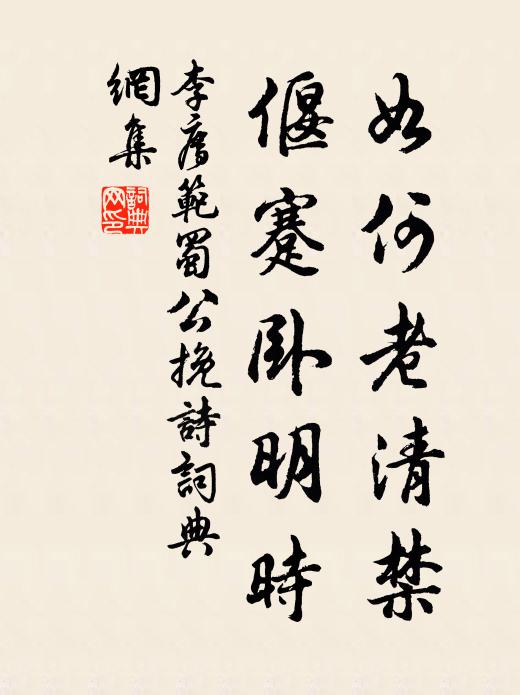 如何老清禁
偃蹇卧明時
李廌範蜀公挽詩詞典
網集
詞典
网印